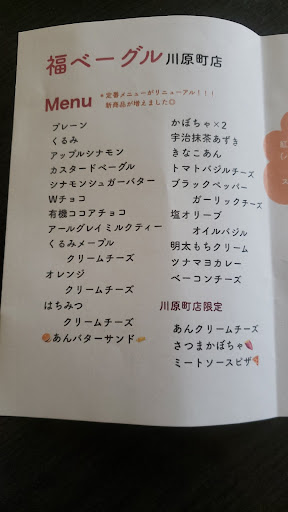 福ベーグル川原町店
Menu
*定番メニューがリニューアル！！！
新商品が増えました◎
プレーン
くるみ
アップルシナモン
カスタードベーグル
シナモンシュガーバター
Wチョコ
有機ココアチョコ
アールグレイミルクティー
くるみメープル
クリームチーズ
オレンジ
クリームチーズ
はちみつ
クリームチーズ
あんバターサンド
かぼちゃ×2
宇治抹茶あずき
きなこあん
トマトバジルチーズ
ブラックペッパー
ガーリックチーズ
塩オリーブ
オイルバジル
明太もちクリーム
ツナマヨカレー
ベーコンチーズ
川原町店限定
あんクリームチーズ
さつまかぼちゃ
ミートソースピザ